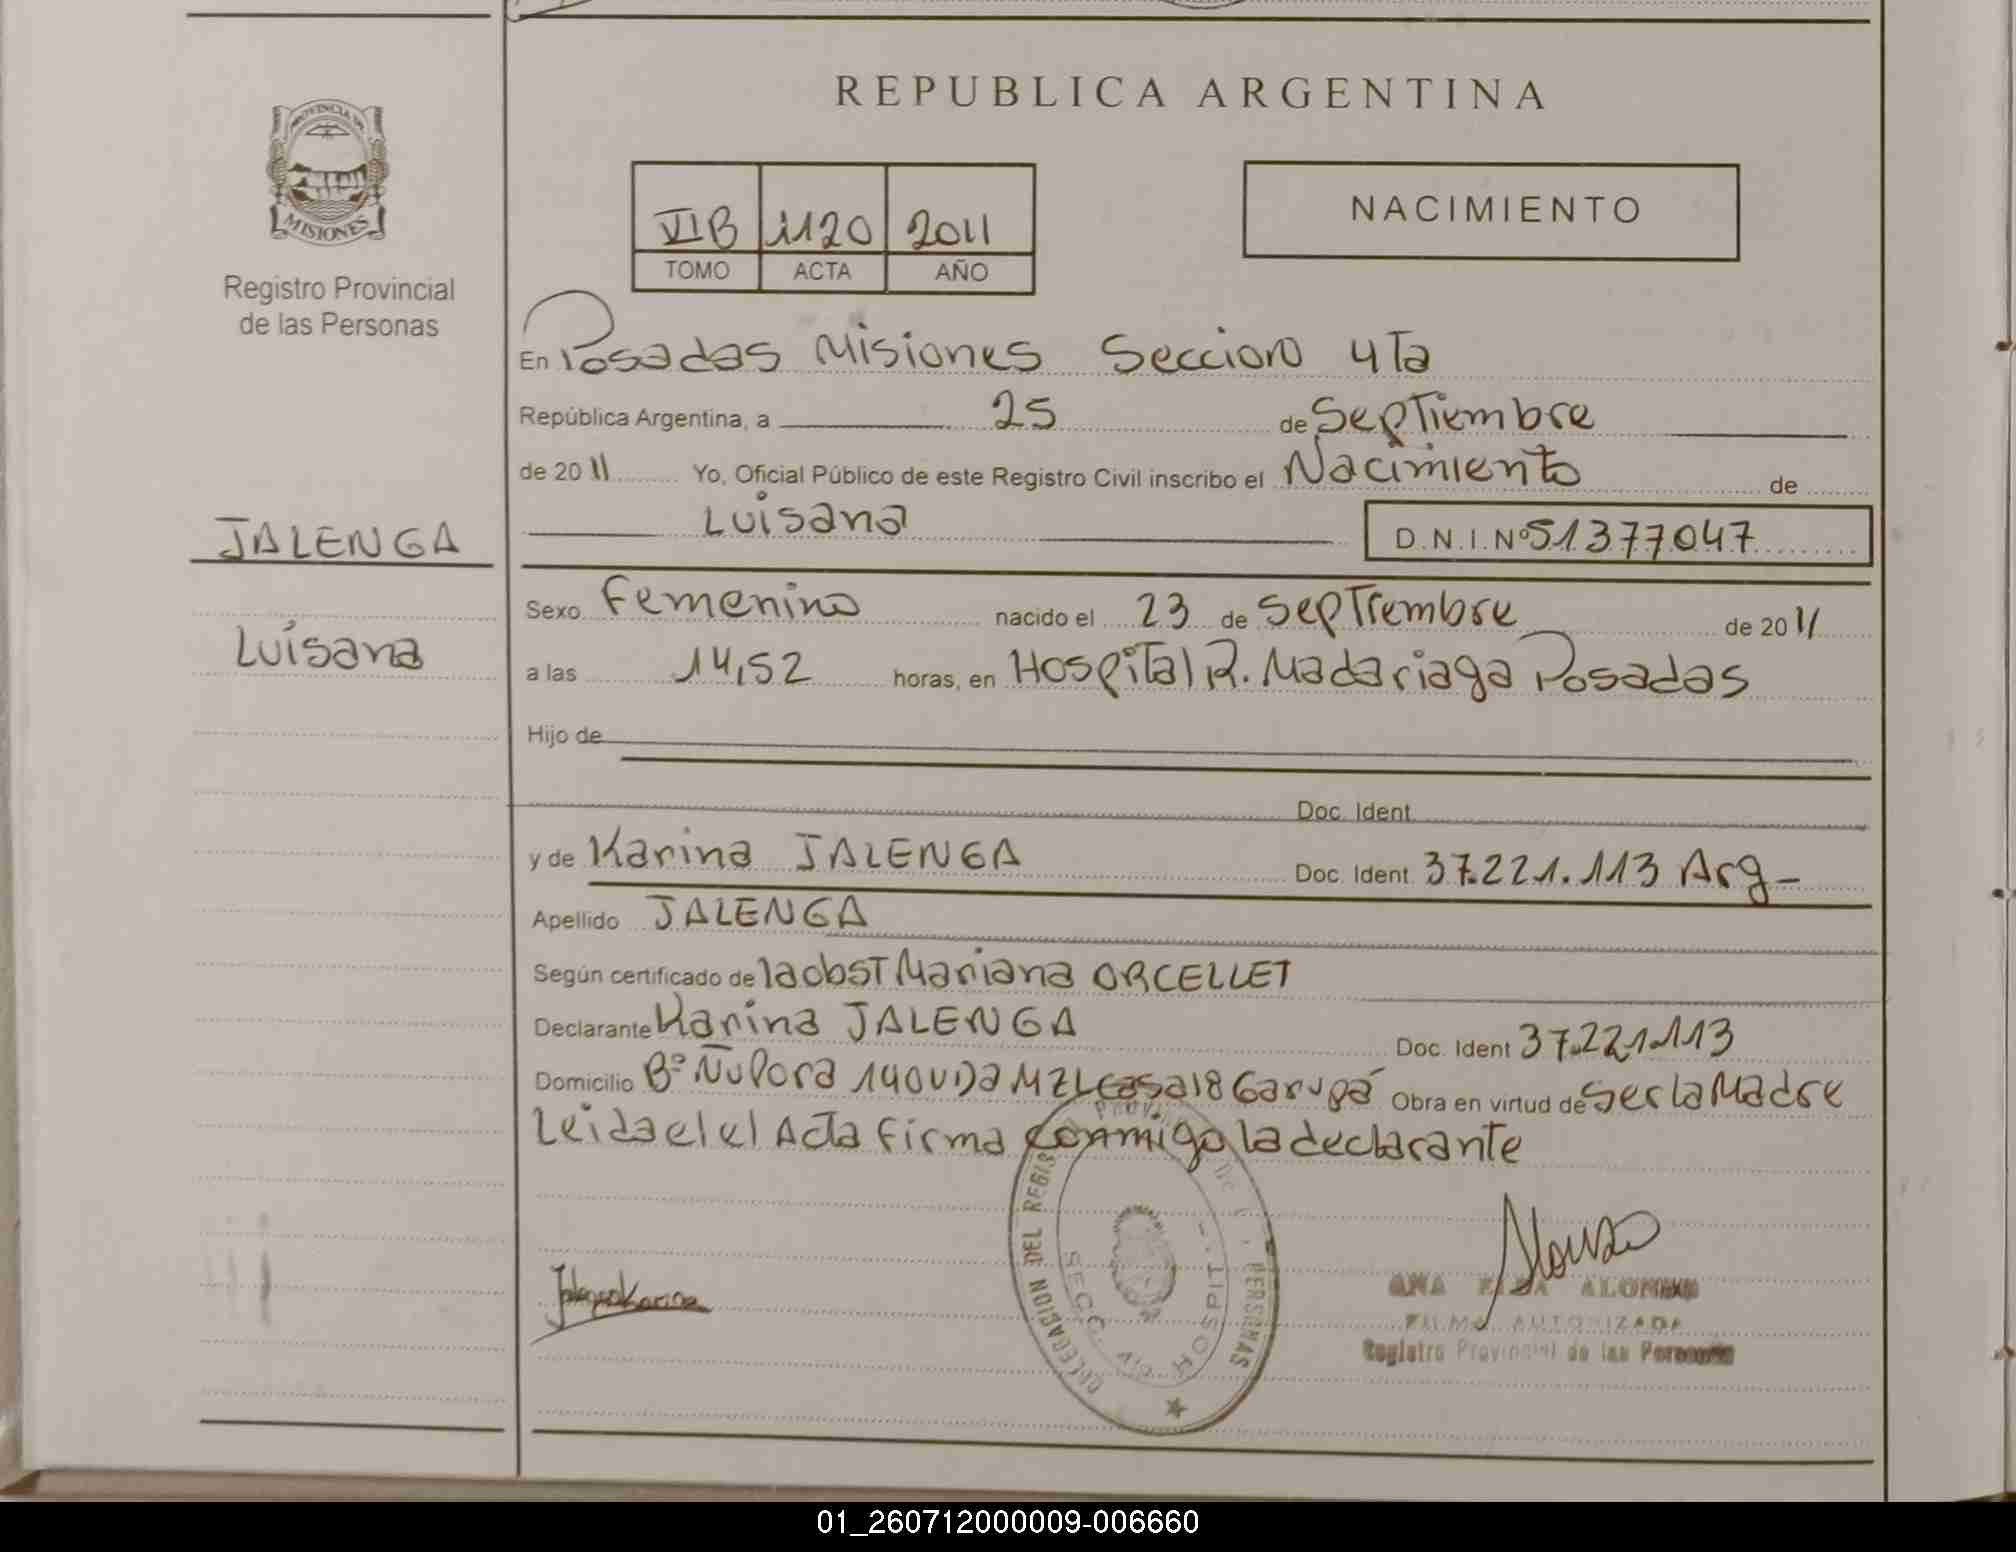 REPUBLICA ARGENTINA
PROVINCIA DE
MISIONES
Registro Provincial
de las Personas
VIB 1120 2011
TOMO ACTA AÑO
NACIMIENTO
En Posadas Misiones Seccion 4Ta
República Argentina, a 25 de SepTiembre
de 2011 Yo, Oficial Público de este Registro Civil inscribo el Nacimiento de
Luisana D.N.I.Nº 51377047
JALENGA
Luisana
Sexo Femenino nacido el 23 de SepTiembre de 2011
a las 14,52 horas, en HospiTal R. Madariaga Posadas
Hijo de
Doc. Ident
y de Karina JALENGA Doc. Ident 37.221.113 Arg-
Apellido JALENGA
Según certificado de la obsT Mariana ORCELLET
Declarante Karina JALENGA Doc. Ident 37.221.113
Domicilio Bº ÑuPora 140 VDa MZL Casa 18 Garupá Obra en virtud de Ser la Madre
Leida el el Acta firma conmigo la declarante
Jalenga Karina
DELEGACION DEL REGIS PROV. DE PERSONAS
SECC. HOSPIT.
ANA ALONSO
FIRMA AUTORIZADA
Registro Provincial de las Personas
01_260712000009-006660